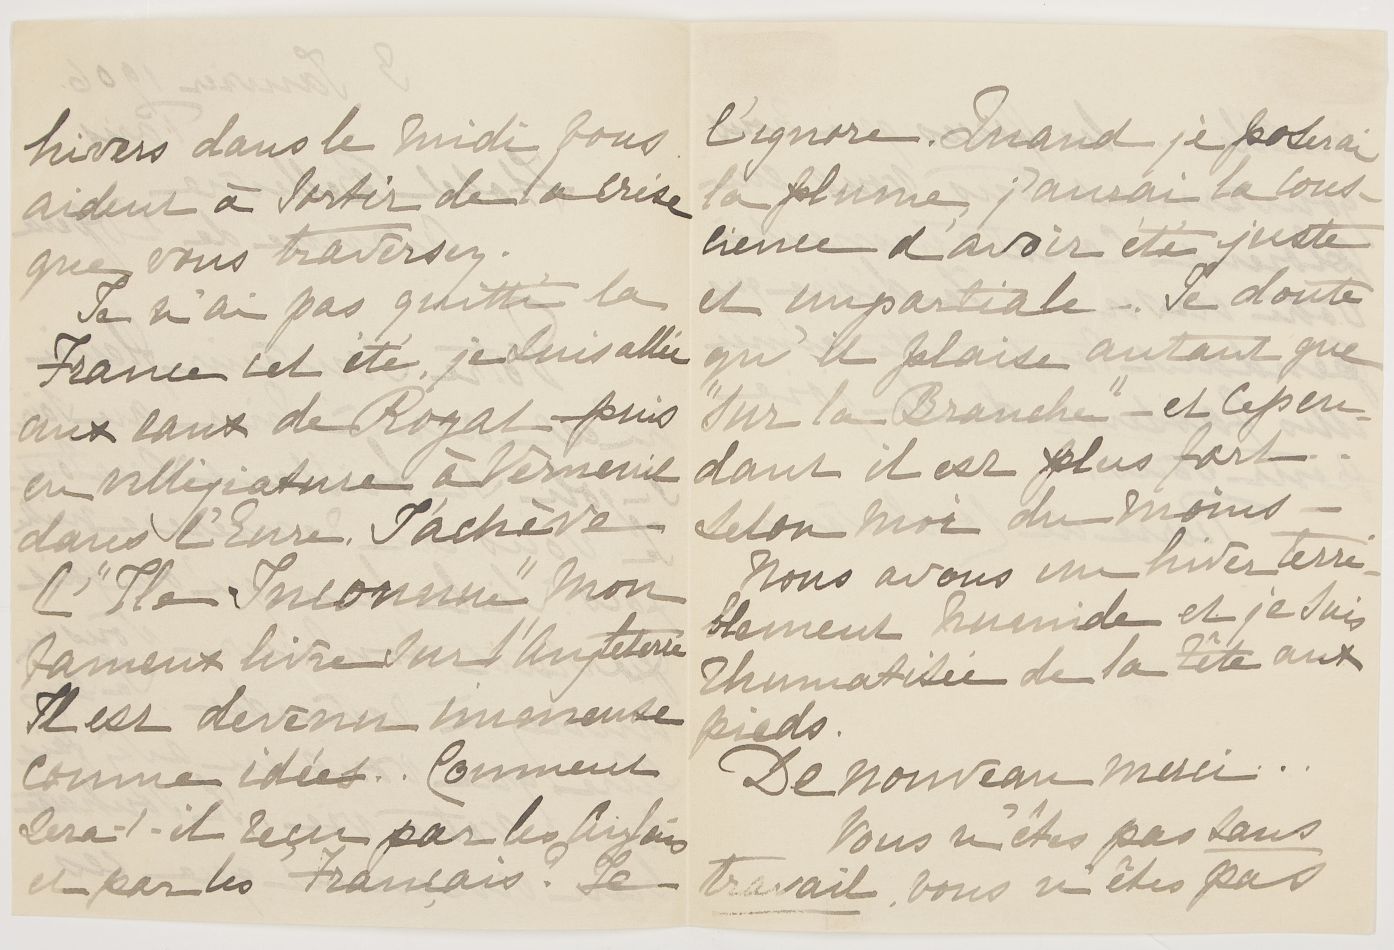 hivers dans le midi vous
aident à sortir de la crise
que vous traversez.
Je n'ai pas quitté la
France cet été, je suis allée
aux eaux de Royat - puis
en villégiature à Verneuil
dans l'Eure. J'achève
l'"Ile Inconnue" mon
fameux livre sur l'Angleterre
Il est devenu immense
comme idées.. Comment
sera-t-il reçu par les Anglais
et par les Français? Je
l'ignore. Quand je poserai
la plume, j'aurai la cons-
cience d'avoir été juste
et impartiale -. Je doute
qu'il plaise autant que
"Sur la Branche" - et cepen-
dant il est plus fort..
selon moi du moins -
Nous avons un hiver terri-
blement humide et je suis
rhumatisée de la tête aux
pieds.
De nouveau merci...
Vous n'êtes pas sans
travail, vous n'êtes pas